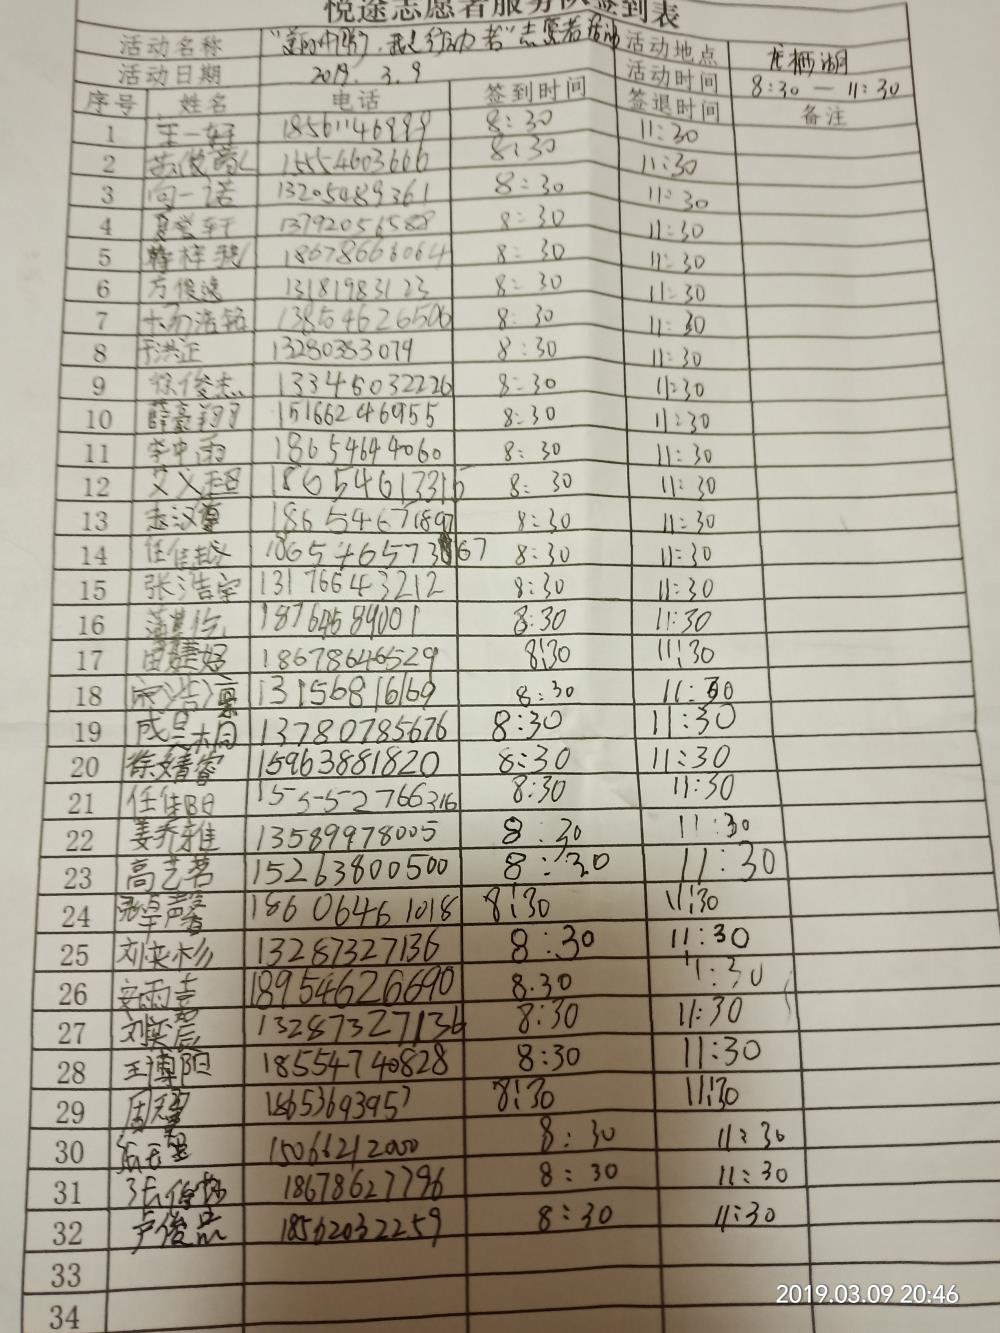 悦途志愿者服务队签到表
活动名称 志愿者活动 活动地点 龙栖湖
活动日期 2019.3.9 活动时间 8:30 — 11:30
序号 姓名 电话 签到时间 签退时间 备注
1 王一好 18561146999 8:30 11:30
2 15554603666 8:30 11:30
3 向一诺 13205489361 8:30 11:30
4 13792056588 8:30 11:30
5 18678666064 8:30 11:30
6 方俊逸 13181983123 8:30 11:30
7 13854626506 8:30 11:30
8 于洪正 13280383079 8:30 11:30
9 徐俊杰 13346032226 8:30 11:30
10 薛豪翔 15166246955 8:30 11:30
11 李中雨 18654644060 8:30 11:30
12 18654613316 8:30 11:30
13 18654671897 8:30 11:30
14 任佳 8:30 11:30
15 张浩宇 13176643212 8:30 11:30
16 18764584001 8:30 11:30
17 18678646529 8:30 11:30
18 13156816169 8:30 11:30
19 13780785676 8:30 11:30
20 徐婧睿 15963881820 8:30 11:30
21 15552766316 8:30 11:30
22 姜乔雅 13589978005 8:30 11:30
23 高艺茗 15263800500 8:30 11:30
24 18606461018 8:30 11:30
25 刘奕杉 13287327136 8:30 11:30
26 安雨 18954626690 8:30 11:30
27 刘奕辰 13287327136 8:30 11:30
28 王博阳 18554740828 8:30 11:30
29 18653693957 8:30 11:30
30 15066212000 8:30 11:30
31 18678627796 8:30 11:30
32 卢俊 18562032259 8:30 11:30
33
34
2019.03.09 20:46